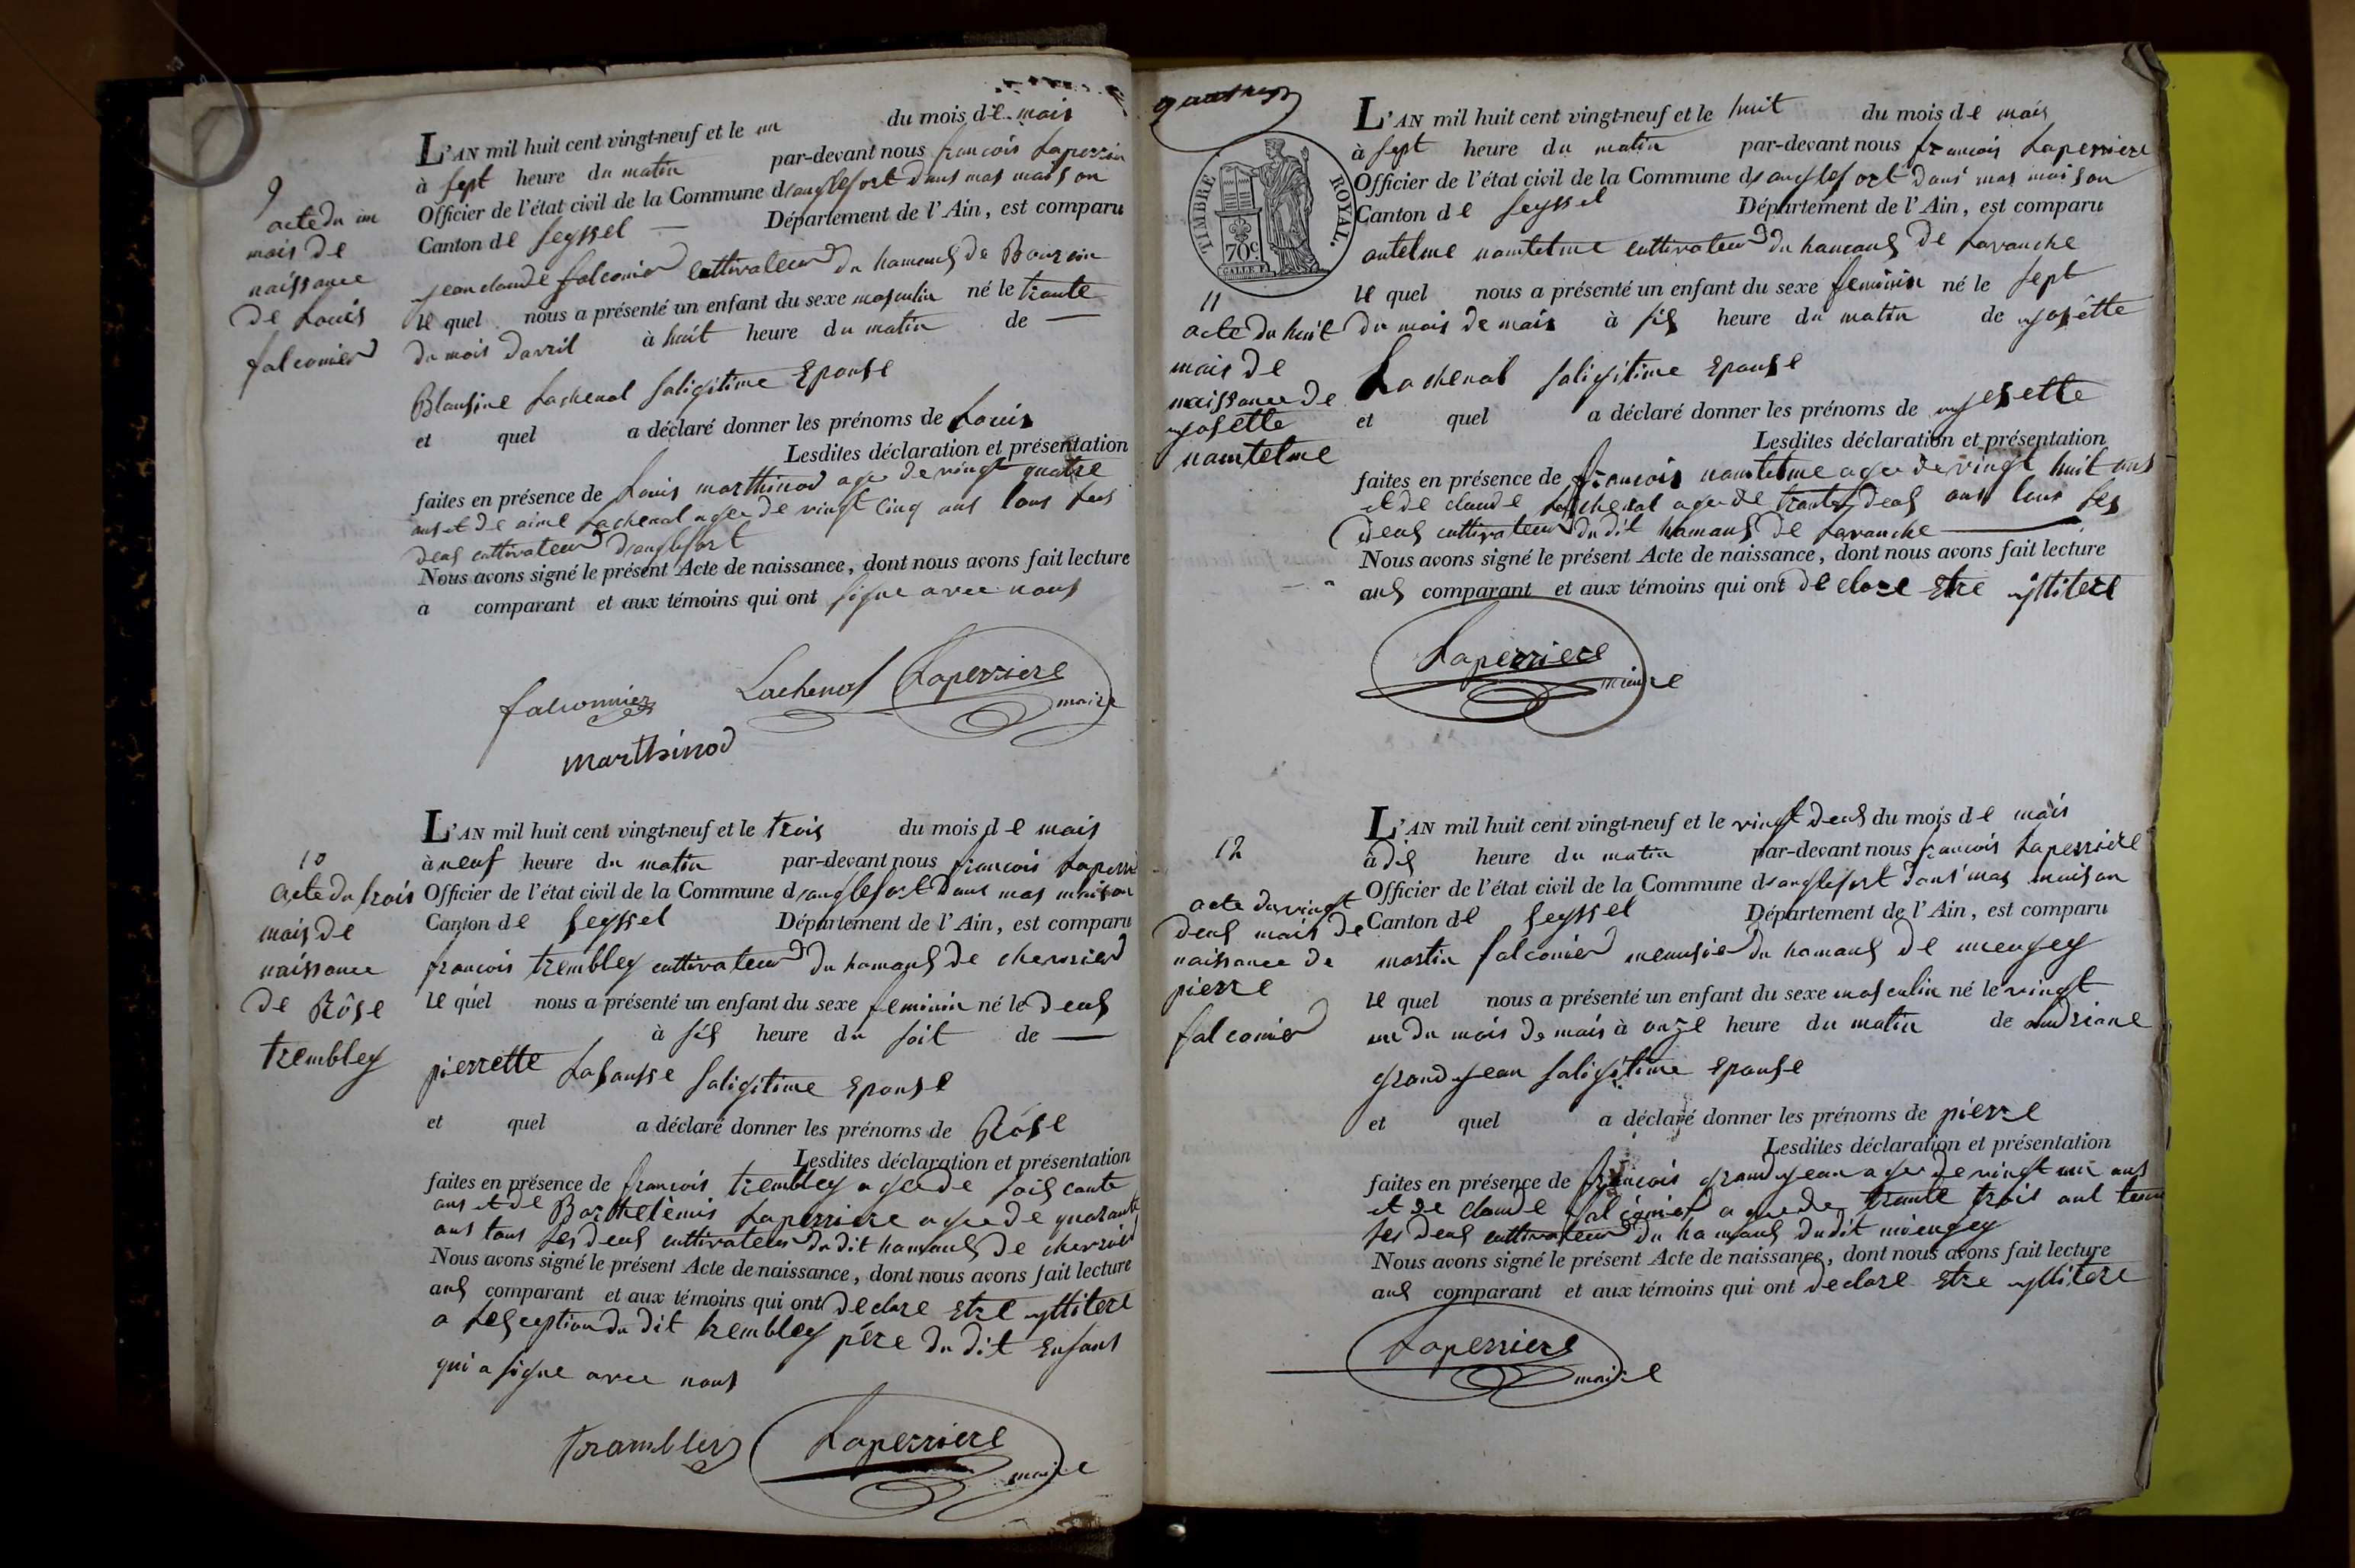 9
acte du un
mais de
naissance
de Louis
falconier
L'AN mil huit cent vingt-neuf et le un du mois de mais
à sept heure du matin par-devant nous francois Laperrier
Officier de l'état civil de la Commune d'anglefort dans mas maison
Canton de seyssel — Département de l'Ain, est comparu
jean claude falconier cultivateur du hamaux de Bourcin
le quel nous a présenté un enfant du sexe masculin né le trante
du mois davril à huit heure du matin de —
Blausine Lachenal saligitime Epouse
et quel a déclaré donner les prénoms de Louis
Lesdites déclaration et présentation
faites en présence de Louis marthinod age de vingt quatre
ans et de aime Lachenal agee de vingt cinq ans tous les
deux cultivateur d'anglefort
Nous avons signé le présent Acte de naissance, dont nous avons fait lecture
a comparant et aux témoins qui ont signe avec nous
falconnier Lachenal Laperriere
maire
marthinod
10
acte du trois
mais de
naissance
de Rôse
trembley
L'AN mil huit cent vingt-neuf et le trois du mois de mais
à neuf heure du matin par-devant nous francois Laperrie
Officier de l'état civil de la Commune d'anglefort dans mas maison
Canton de seyssel Département de l'Ain, est comparu
francois trembley cultivateur du hamaux de chevrier
le quel nous a présenté un enfant du sexe feminin né le deux
à six heure du soit de —
pierrette Lasausse saligitime Epouse
et quel a déclaré donner les prénoms de Rôse
Lesdites déclaration et présentation
faites en présence de francois trembley agee de soixcante
ans et de Barthelemis Laperriere agee de quarante
ans tous ses deux cultivateur du dit hamaux de chevrier
Nous avons signé le présent Acte de naissance, dont nous avons fait lecture
aux comparant et aux témoins qui ont declare Etre yllitere
a Lesception du dit trembley père du dit Enfant
qui a signe avec nous
Tramblery Laperriere
maire
TIMBRE ROYAL.
70c.
11
acte du huit
mais de
naissance de
josette
namtelme
L'AN mil huit cent vingt-neuf et le huit du mois de mais
à sept heure du matin par-devant nous francois Laperriere
Officier de l'état civil de la Commune d'anglefort dans mas maison
Canton de seyssel Département de l'Ain, est comparu
antelme namtelme cultivateur du hamaux de Lavanche
le quel nous a présenté un enfant du sexe feminin né le sept
du mois de mais à six heure du matin de josette
Lachenal saligitime Epouse
et quel a déclaré donner les prénoms de josette
Lesdites déclaration et présentation
faites en présence de francois namtelme agee de vingt huit ans
et de claude Lachenal agee de trante deux ans tous ses
deux cultivateur du dit hamaux de Lavanche
Nous avons signé le présent Acte de naissance, dont nous avons fait lecture
aux comparant et aux témoins qui ont declare Etre yllitere
Laperriere
maire
12
acte du vingt
deux mais de
naissance de
pierre
falconier
L'AN mil huit cent vingt-neuf et le vingt deux du mois de mais
à dix heure du matin par-devant nous francois Laperriere
Officier de l'état civil de la Commune d'anglefort dans mas maison
Canton de seyssel Département de l'Ain, est comparu
martin falconier menusier du hamaux de mieugey
le quel nous a présenté un enfant du sexe masculin né le vingt
un du mois de mais à onze heure du matin de andriane
grand jean saligitime Epouse
et quel a déclaré donner les prénoms de pierre
Lesdites déclaration et présentation
faites en présence de francois grand jean agee de vingt un ans
et de claude falconier agee de trante trois ant tous
ses deux cultivateur du hamaux du dit mieugey
Nous avons signé le présent Acte de naissance, dont nous avons fait lecture
aux comparant et aux témoins qui ont declare Etre yllitere
Laperriere
maire